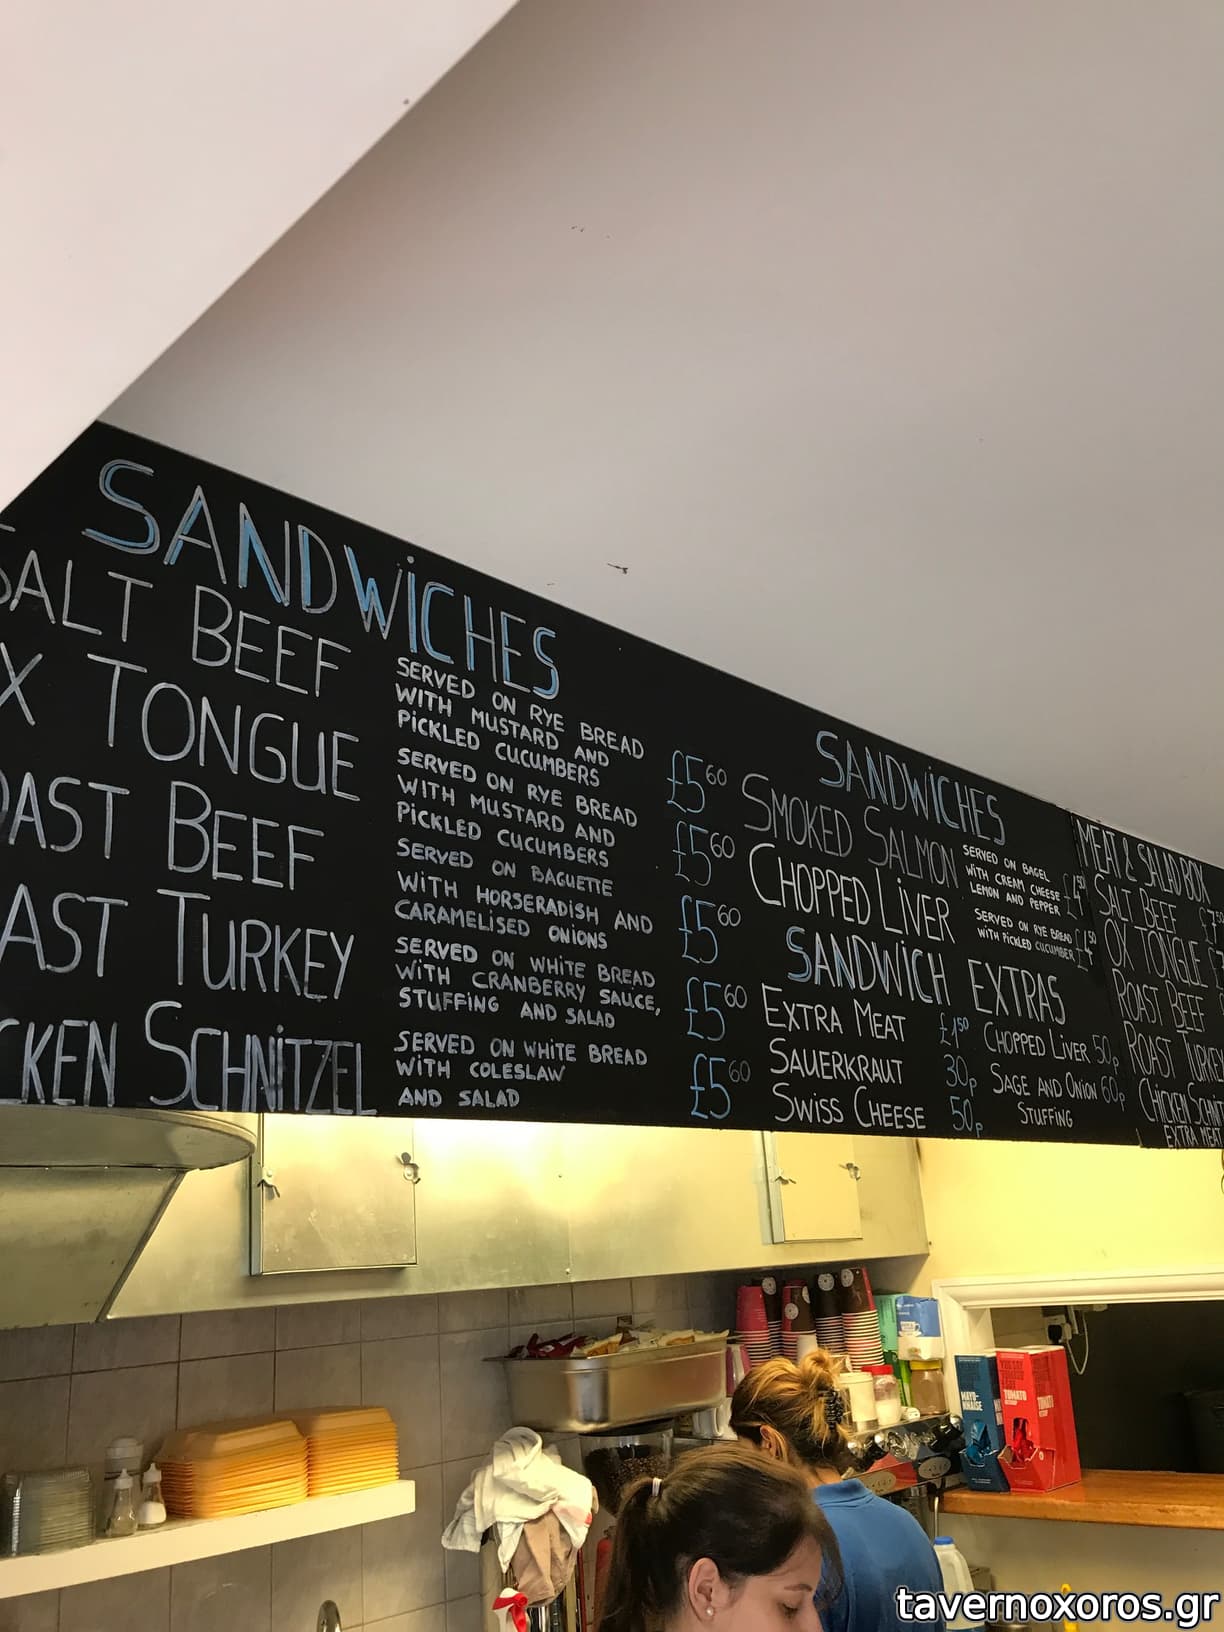 SANDWICHES
SALT BEEF
SERVED ON RYE BREAD
WITH MUSTARD AND
PICKLED CUCUMBERS
£5 60
OX TONGUE
SERVED ON RYE BREAD
WITH MUSTARD AND
PICKLED CUCUMBERS
£5 60
ROAST BEEF
SERVED ON BAGUETTE
WITH HORSERADISH AND
CARAMELISED ONIONS
£5 60
ROAST TURKEY
SERVED ON WHITE BREAD
WITH CRANBERRY SAUCE,
STUFFING AND SALAD
£5 60
CHICKEN SCHNITZEL
SERVED ON WHITE BREAD
WITH COLESLAW
AND SALAD
£5 60
SANDWICHES
SMOKED SALMON
SERVED ON BAGEL
WITH CREAM CHEESE
LEMON AND PEPPER
CHOPPED LIVER
SERVED ON RYE BREAD
WITH PICKLED CUCUMBER
£4 50
SANDWICH EXTRAS
EXTRA MEAT £1 50
SAUERKRAUT 30p
SWISS CHEESE 50p
CHOPPED LIVER 50p
SAGE AND ONION 60p
STUFFING
MEAT & SALAD BOX
SALT BEEF
OX TONGUE
ROAST BEEF
ROAST TURKEY
CHICKEN SCHNI
EXTRA MEAT
MAYO-
NNAISE
TOMATO
tavernoxoros.gr